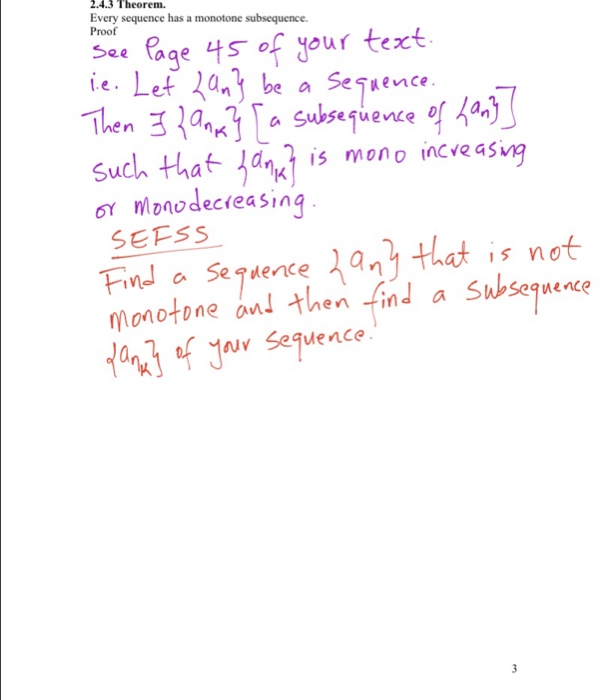 2.4.3 Theorem.
Every sequence has a monotone subsequence.
Proof
See Page 45 of your text.
i.e. Let {an} be a sequence.
Then ∃ {ank} [a subsequence of {an}]
such that {ank} is mono increasing
or monodecreasing.
SEFSS
Find a sequence {an} that is not
monotone and then find a subsequence
{ank} of your sequence.
3